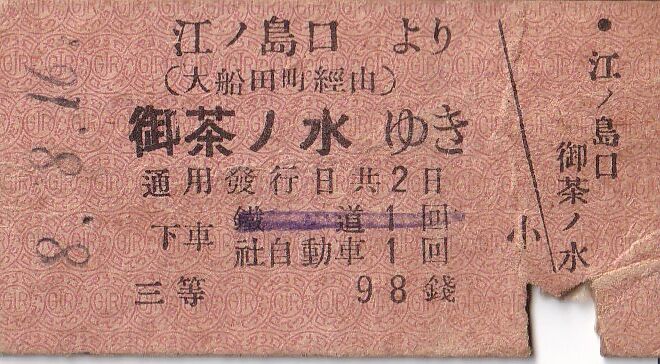 8.8.16
江ノ島口 より
(大船田町經由)
御茶ノ水 ゆき
通用發行日共2日
下車 鐵道1回
社自動車1回
三等 98錢
小
江ノ島口
御茶ノ水